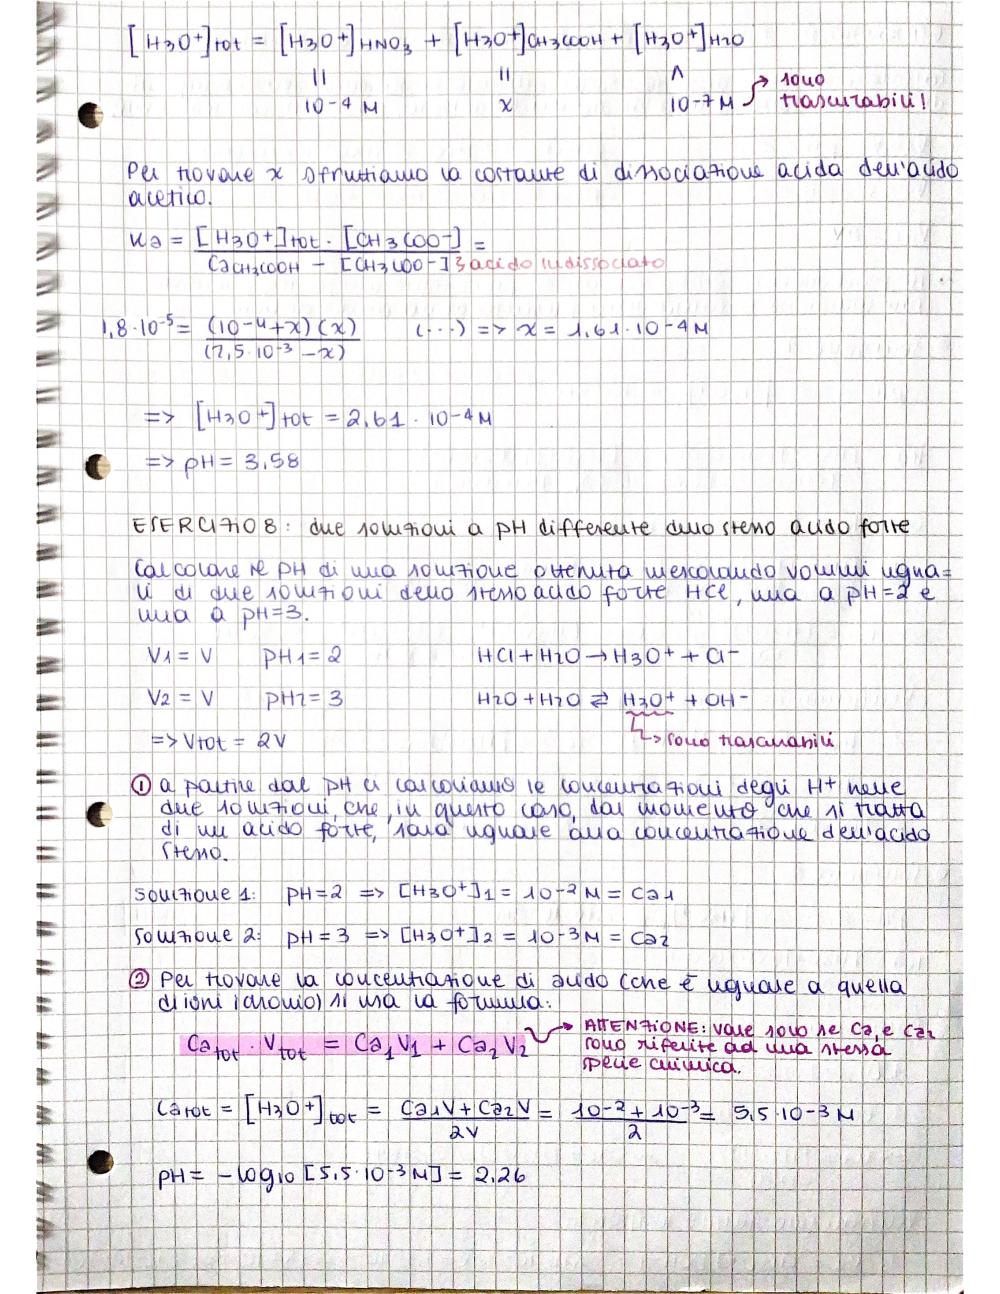 [H3O+]tot = [H3O+]HNO3 + [H3O+]CH3COOH + [H3O+]H2O
10-4 M x 10-7 M → sono trascurabili!
Per trovare x sfruttiamo la costante di dissociazione acida dell'acido
acetico.
Ka = [H3O+]tot · [CH3COO-] =
CaCH3COOH - [CH3COO-] } acido indissociato
1,8·10-5 = (10-4+x)(x) (...) => x = 1,61·10-4 M
(2,5·10-3 -x)
=> [H3O+]tot = 2,61 · 10-4 M
=> pH = 3,58
ESERCIZIO 8: due soluzioni a pH differente dello stesso acido forte
Calcolare il pH di una soluzione ottenuta mescolando volumi ugua=
li di due soluzioni dello stesso acido forte HCl, una a pH=2 e
una a pH=3.
V1 = V pH1 = 2 HCl + H2O → H3O+ + Cl-
V2 = V pH2 = 3 H2O + H2O ⇄ H3O+ + OH-
=> Vtot = 2V → sono trascurabili
① a partire dal pH ci calcoliamo le concentrazioni degli H+ nelle
due soluzioni, che, in questo caso, dal momento che si tratta
di un acido forte, sarà uguale alla concentrazione dell'acido
stesso.
Soluzione 1: pH=2 => [H3O+]1 = 10-2 M = Ca1
Soluzione 2: pH=3 => [H3O+]2 = 10-3 M = Ca2
② Per trovare la concentrazione di acido (che è uguale a quella
di ioni idronio) si usa la formula:
Catot · Vtot = Ca1V1 + Ca2V2 → ATTENZIONE: vale solo se Ca1 e Ca2
sono riferite ad una stessa
specie chimica.
Catot = [H3O+]tot = Ca1V + Ca2V = 10-2 + 10-3 = 5,5·10-3 M
2V 2
pH = -log10 [5,5·10-3 M] = 2,26